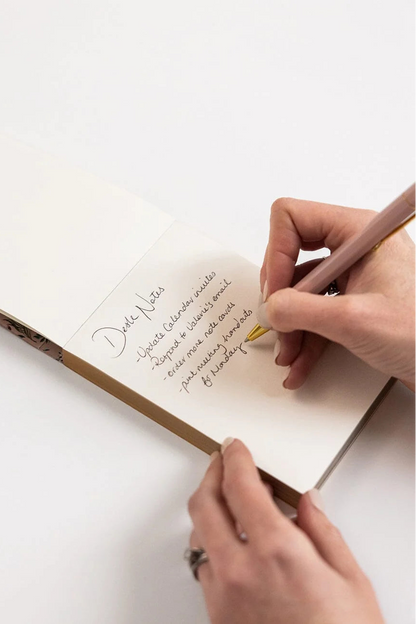 Desk Notes
-Update Calendar invites
-Respond to Valerie's email
-order more note cards
-print meeting handouts
for Monday